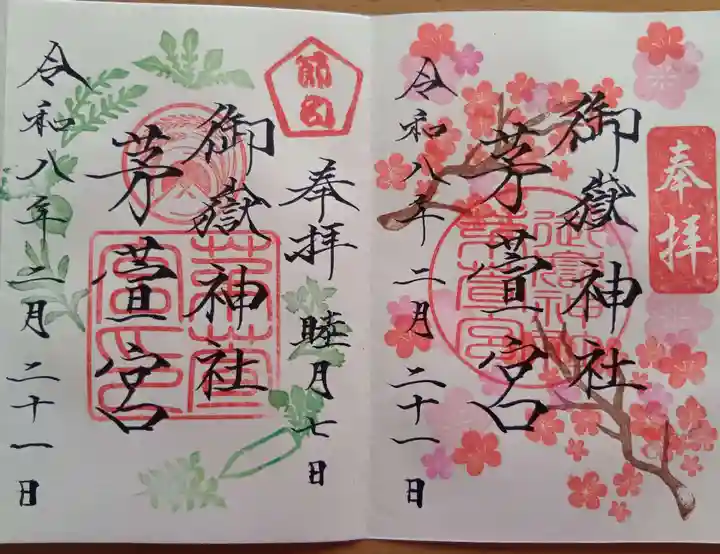 奉拝
御嶽神社
茅萱宮
令和八年二月二十一日
節句
奉拝 睦月七日
御嶽神社
茅萱宮
令和八年二月二十一日